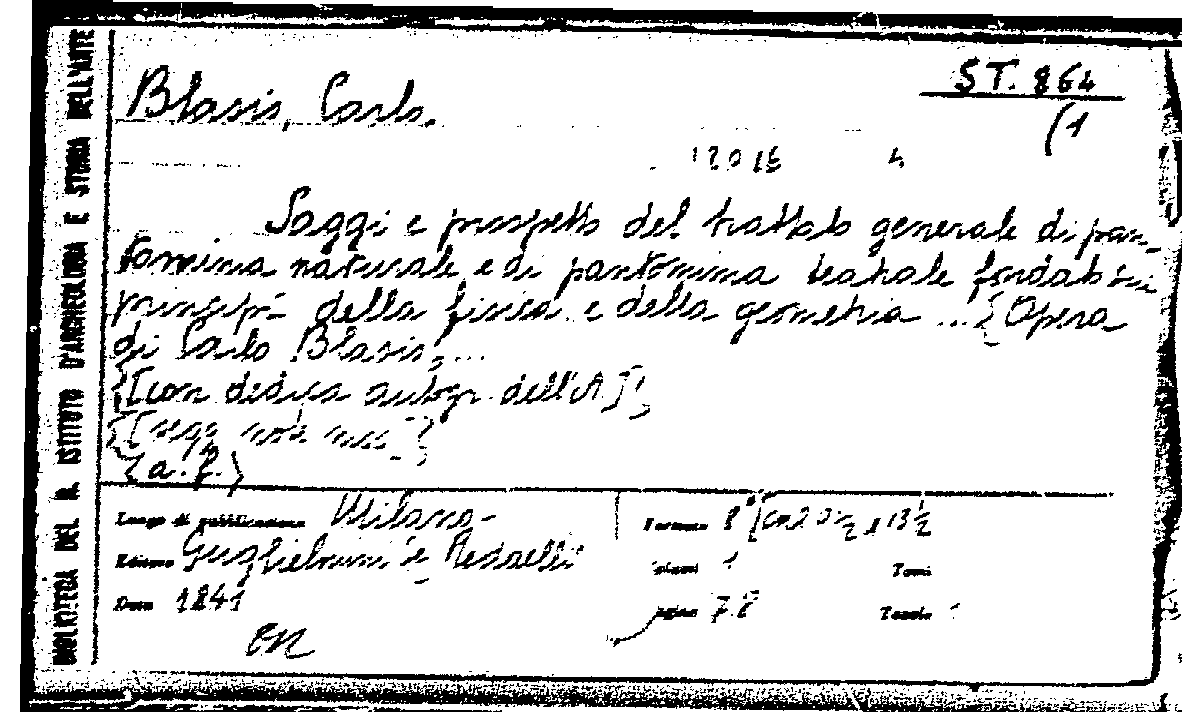 BIBLIOTECA DEL R. ISTITUTO D'ARCHEOLOGIA E STORIA DELL'ARTE
ST. 864
Blasis, Carlo.
(1
12016
Saggi e prospetto del trattato generale di pan-
tomima naturale e di pantomima teatrale fondato sui
principi della fisica e della geometria ... {Opera
di Carlo Blasis, ...
{[con dedica autogr. dell'A]},
{[segg. note mss.]}
{a. f.}
Luogo di pubblicazione Milano
Formato 8° [cm 20½ x 13½
Editore Guglielmini e Redaelli
Volumi 1 Tomi
Data 1841
Pagine 78 Tavole 1